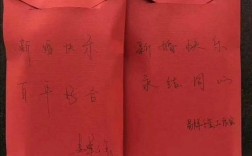 新婚快乐
百年好合
新婚快乐
永结同心